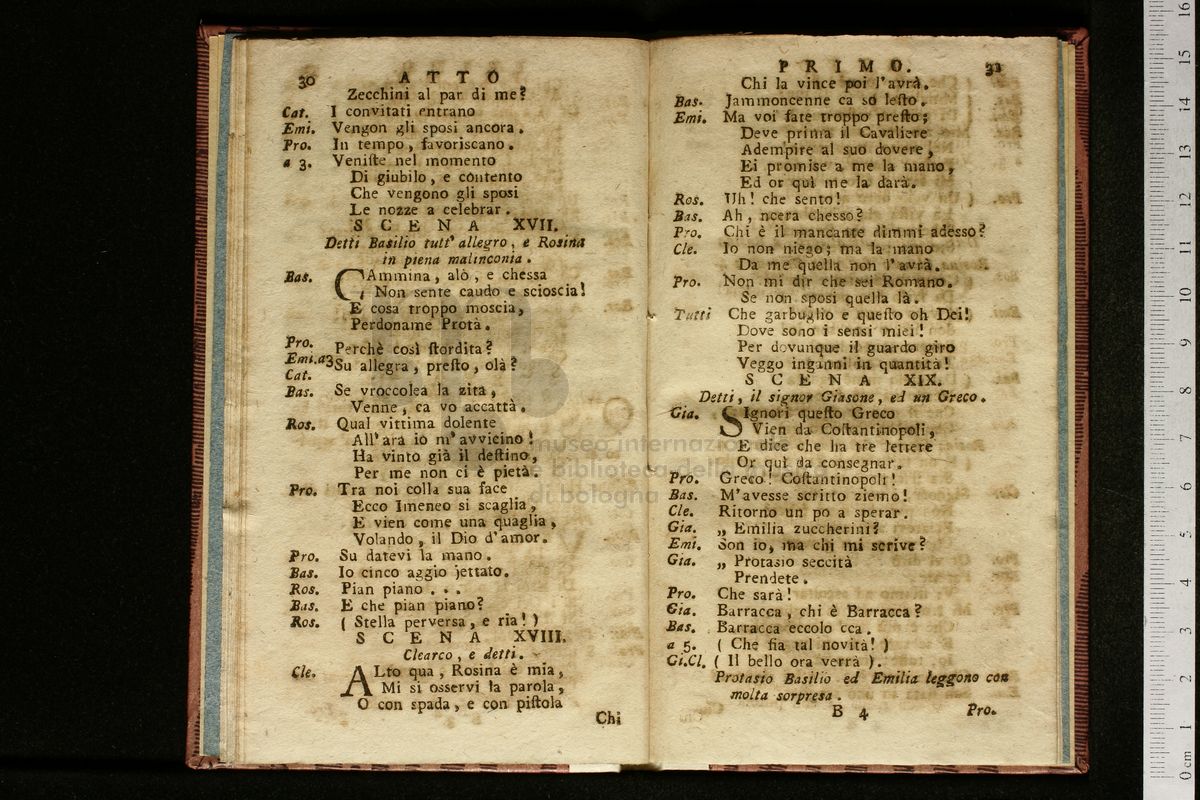 30 ATTO
Zecchini al par di me?
Cat. I convitati entrano
Emi. Vengon gli sposi ancora.
Pro. In tempo, favoriscano.
a 3. Veniſte nel momento
Di giubilo, e contento
Che vengono gli sposi
Le nozze a celebrar.
SCENA XVII.
Detti Basilio tutt' allegro, e Rosina
in piena malinconia.
Bas. GAmmina, alò, e chessa
Non sente caudo e scioscia!
E cosa troppo moscia,
Perdoname Protà.
Pro.
Emi. a3 Perchè così ſtordita?
Cat. Su allegra, preſto, olà?
Bas. Se vroccolea la zita,
Venne, ca vo accattà.
Ros. Qual vittima dolente
All' ara io m' avvicino!
Ha vinto già il deſtino,
Per me non ci è pietà.
Pro. Tra noi colla sua face
Ecco Imeneo si scaglia,
E vien come una quaglia,
Volando, il Dio d' amor.
Pro. Su datevi la mano.
Bas. Io cinco aggio jettato.
Ros. Pian piano . . .
Bas. E che pian piano?
Ros. (Stella perversa, e ria!)
SCENA XVIII.
Clearco, e detti.
Cle. ALto qua, Rosina è mia,
Mi si osservi la parola,
O con spada, e con piſtola
Chi
PRIMO. 31
Chi la vince poi l' avrà.
Bas. Jammoncenne ca so leſto.
Emi. Ma voi fate troppo preſto;
Deve prima il Cavaliere
Adempire al suo dovere,
Ei promise a me la mano,
Ed or quì me la darà.
Ros. Uh! che sento!
Bas. Ah, ncera chesso?
Pro. Chi è il mancante dimmi adesso?
Cle. Io non niego; ma la mano
Da me quella non l' avrà.
Pro. Non mi dir che sei Romano.
Se non sposi quella là.
Tutti Che garbuglio e queſto oh Dei!
Dove sono i sensi miei!
Per dovunque il guardo giro
Veggo inganni in quantità!
SCENA XIX.
Detti, il signor Giasone, ed un Greco.
Gia. SIgnori queſto Greco
Vien da Coſtantinopoli,
E dice che ha tre lettere
Or quì da consegnar.
Pro. Greco! Coſtantinopoli!
Bas. M' avesse scritto ziemo!
Cle. Ritorno un po a sperar.
Gia. „ Emilia zuccherini?
Emi. Son io, ma chi mi scrive?
Gia. „ Protasio seccità
Prendete.
Pro. Che sarà!
Gia. Barracca, chi è Barracca?
Bas. Barracca eccolo cca.
a 5. (Che fia tal novità!)
Gi.Cl. (Il bello ora verrà).
Protasio Basilio ed Emilia leggono con
molta sorpresa.
B 4 Pro.
museo internazionale
e biblioteca della musica
di bologna
0 cm 1 2 3 4 5 6 7 8 9 10 11 12 13 14 15 16